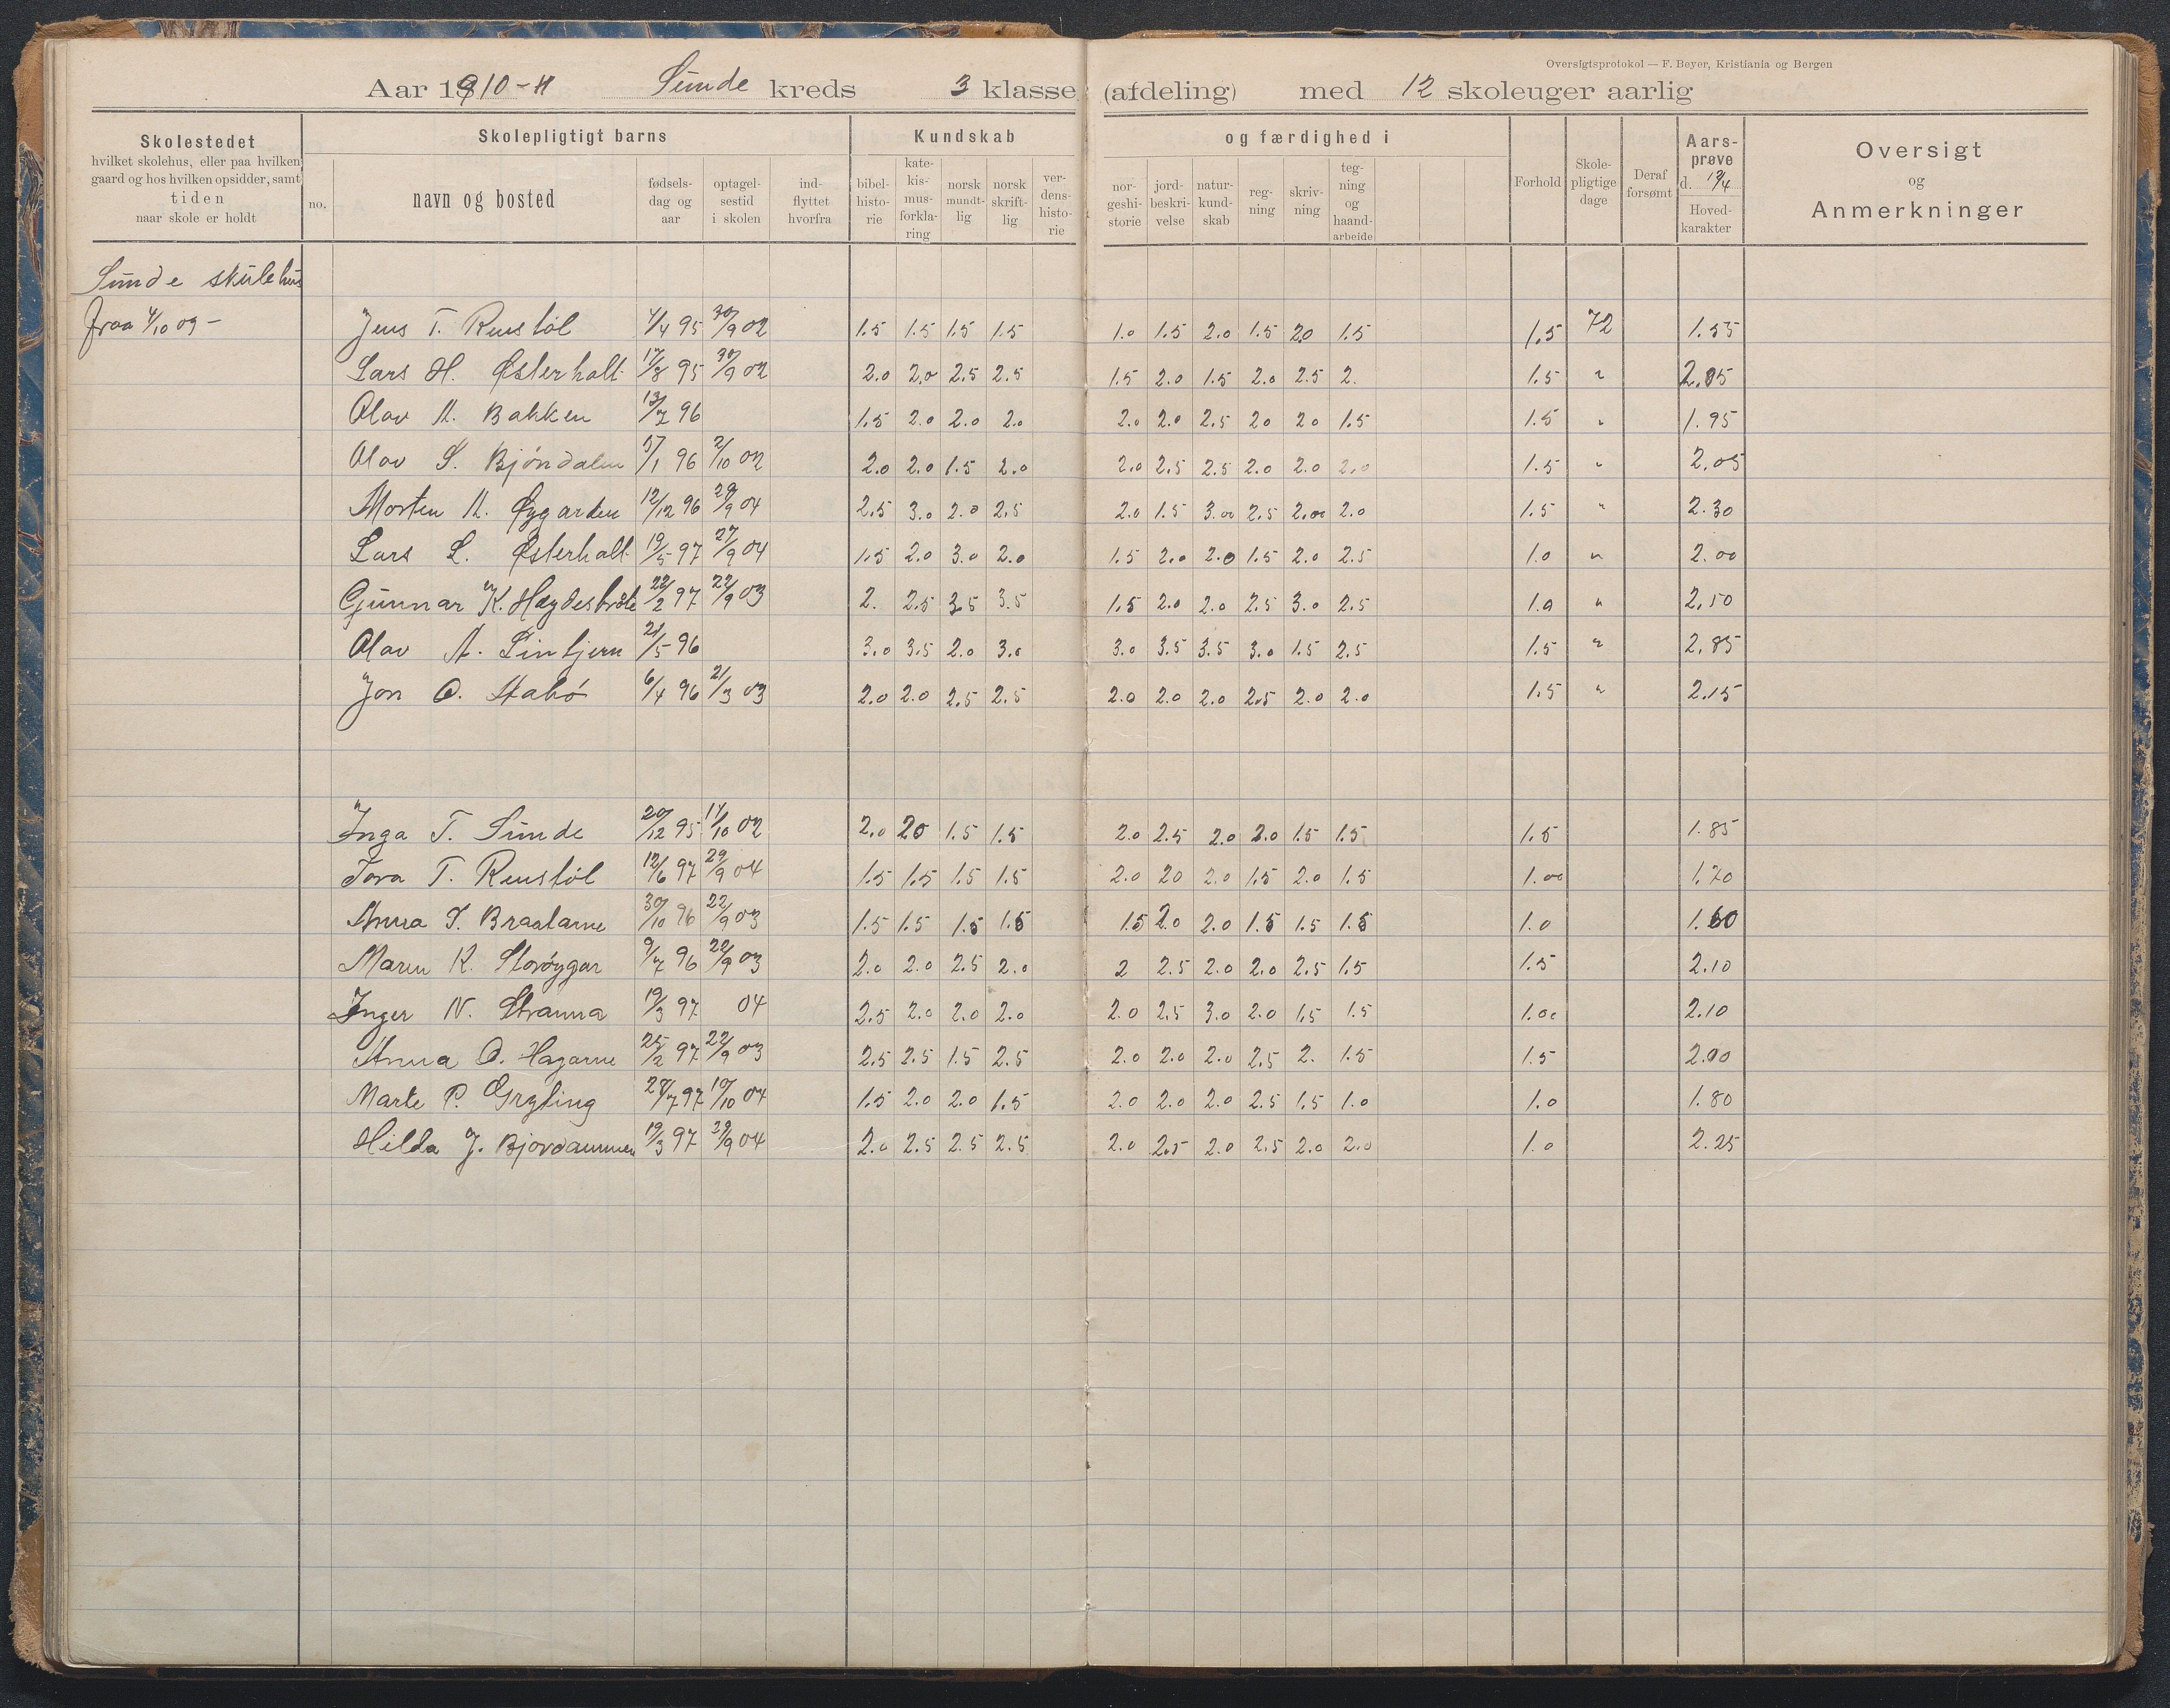 Oversigtsprotokol — F. Beyer, Kristiania og Bergen
Aar 1910-11 Sunde kreds 3 klasse (afdeling) med 12 skoleuger aarlig
Skolestedet
hvilket skolehus, eller paa hvilken
gaard og hos hvilken opsidder, samt
tiden
naar skole er holdt
Skolepligtigt barns
no.
navn og bosted
fødsels-
dag og
aar
optagel-
sestid
i skolen
ind-
flyttet
hvorfra
Kundskab
bibel-
histo-
rie
kate-
kis-
mus-
forkla-
ring
norsk
mundt-
lig
norsk
skrift-
lig
ver-
dens-
histo-
rie
og færdighed i
nor-
geshi-
storie
jord-
beskri-
velse
natur-
kund-
skab
reg-
ning
skriv-
ning
teg-
ning
og
haand-
arbeide
Forhold
Skole-
pligtige
dage
Deraf
forsømt
Aars-
prøve
d. 12/4
Hoved-
karakter
Oversigt
og
Anmerkninger
Sunde skulehus
fraa 4/10 09 –
Jens T. Rustøl 4/4 95 30/9 02 1.5 1.5 1.5 1.5 1.0 1.5 2.0 1.5 2.0 1.5 1.5 72 1.55
Lars H. Østerholt 17/8 95 30/9 02 2.0 2.0 2.5 2.5 1.5 2.0 1.5 2.0 2.5 2. 1.5 " 2.05
Olav M. Bakken 13/7 96 1.5 2.0 2.0 2.0 2.0 2.0 2.5 20 20 1.5 1.5 " 1.95
Olav S. Bjöndalen 17/1 96 2/10 02 2.0 2.0 1.5 2.0 2.0 2.5 2.5 2.0 2.0 2.0 1.5 " 2.05
Morten M. Øygarden 12/12 96 29/9 04 2.5 3.0 2.0 2.5 2.0 1.5 3.00 2.5 2.00 2.0 1.5 " 2.30
Lars L. Østerholt 19/5 97 27/9 04 1.5 2.0 3.0 2.0 1.5 2.0 2.0 1.5 2.0 2.5 1.0 " 2.00
Gunnar K. 22/2 97 22/9 03 2. 2.5 3.5 3.5 1.5 2.0 2.0 2.5 3.0 2.5 1.0 " 2.50
Olav A. Lintjern 21/5 96 3.0 3.5 2.0 3.0 3.0 3.5 3.5 3.0 1.5 2.5 1.5 " 2.85
Jon O. Stabö 6/4 96 21/3 03 2.0 2.0 2.5 2.5 2.0 2.0 2.0 2.5 2.0 2.0 1.5 " 2.15
Inga T. Sunde 20/12 95 14/10 02 2.0 20 1.5 1.5 2.0 2.5 2.0 2.0 1.5 1.5 1.5 1.85
Tora T. Rustøl 12/6 97 29/9 04 1.5 1.5 1.5 1.5 2.0 20 2.0 1.5 2.0 1.5 1.00 1.70
Anna S. Braatarne 30/10 96 22/9 03 1.5 1.5 1.5 1.5 1.5 2.0 2.0 1.5 1.5 1.5 1.0 1.60
Maren K. Storöygar 9/7 96 22/9 03 2.0 2.0 2.5 2.0 2 2.5 2.0 2.0 2.5 1.5 1.5 2.10
Inger N. Stranna 19/3 97 04 2.5 2.0 2.0 2.0 2.0 2.5 3.0 2.0 1.5 1.5 1.00 2.10
Anna O. Hagarne 25/2 97 22/9 03 2.5 2.5 1.5 2.5 2.0 2.0 2.0 2.5 2. 1.5 1.5 2.10
Marte P. Grytling 28/7 97 10/10 04 1.5 2.0 2.0 1.5 2.0 2.0 2.0 2.5 1.5 1.0 1.0 1.80
Hilda J. Bjordammen 19/3 97 29/9 04 2.0 2.5 2.5 2.5 2.0 2.5 2.0 2.5 2.0 2.0 1.0 2.25